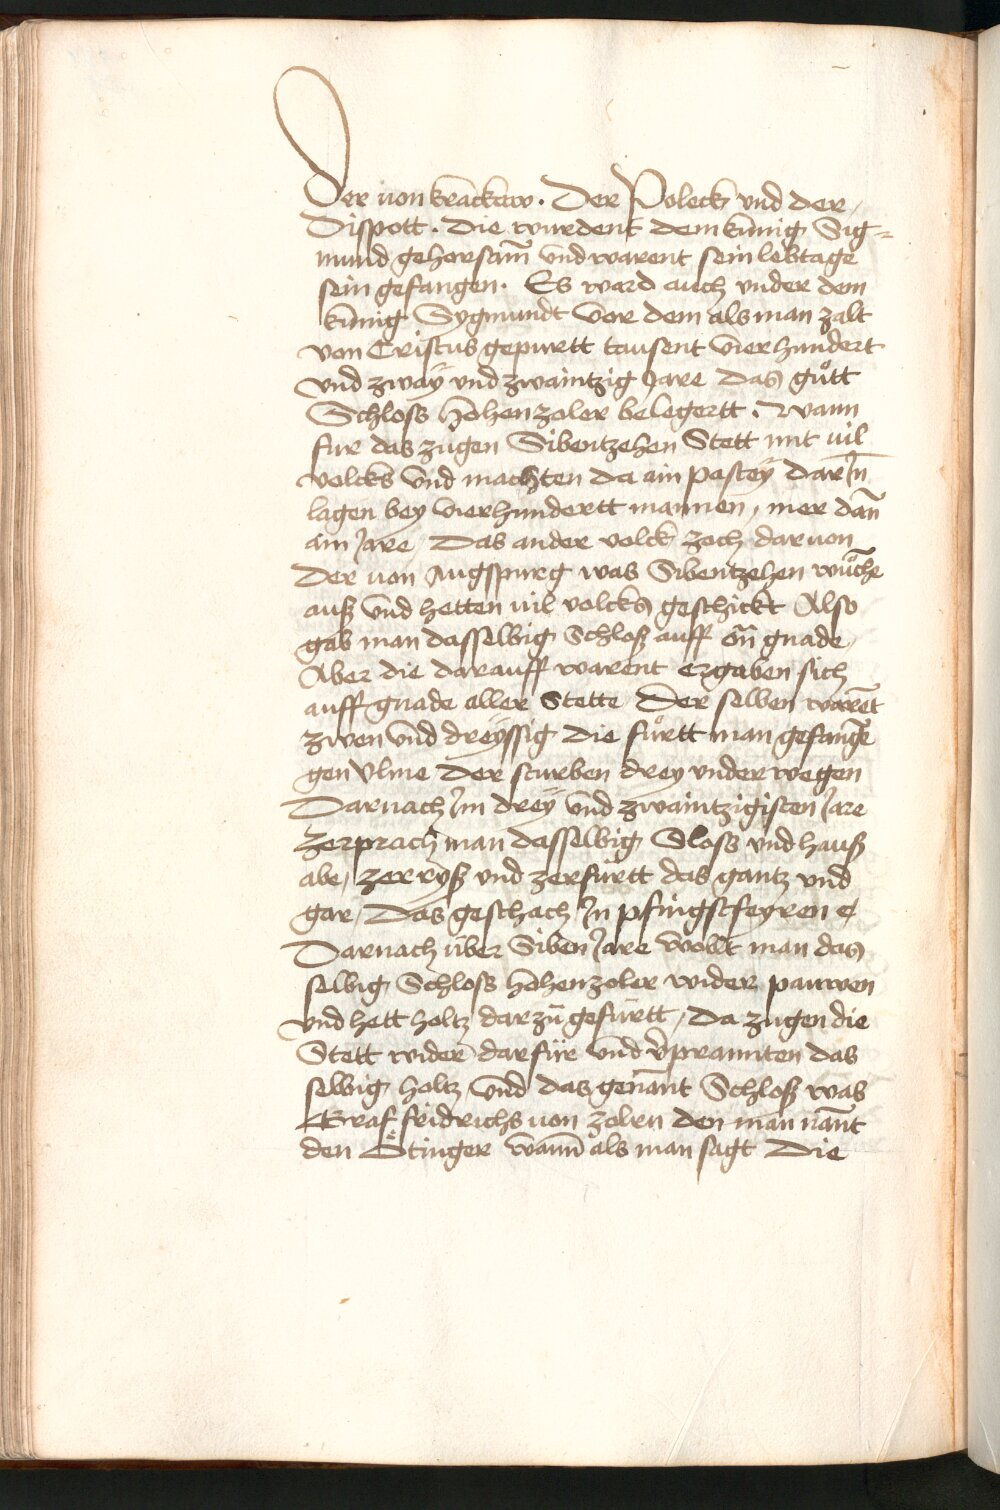 Der von krackaw. Der Poleck und der
Dispott. Die wurdent dem kunig Sig=
mund gehorsam̄ und warent sein lebtage
sein gefangen. Es ward auch under dem
kunig Sygmundt Vor dem als man zalt
von Cristus gepurtt tausent vierhundert
Und zwaÿ und zwaintzig Jare das gůtt
Schloss Hohenzoler belegertt. Wann
fur das zugen Sibentzehen Stett mit vil
volcks Und machten da ain pasteÿ dar Jn̄
lagen bey vierhundertt mannen, mer dan̄
ain Jare, Das ander volck zoch darvon
Der von Augspurg was Sibentzehen wůchē
auß Und hetten vil volcks geschickt Also
gab man dasselbig Schloß auff on̄ gnade,
Aber die darauff warent ergaben sich
auff gnade aller Stette Der selben warēt
zwen und dreÿssig Die fůrtt man gefangē
gen Ulme Der sturben drey underwegen
Darnach Jm dreÿ und zwaintzigisten Jare
Zerprach man dasselbig Sloss und hauß
abe, zerrÿß und zerfurtt das gantz und
gar, Das geschach Jn pfingstfeyren
Darnach uber Siben Jare wollt man das
selbig Schloss hohenzoler wider pauwen
Und hett holtz darzů gefurtt, Da zugen die
Stett wider darfur und v̄prannten das
selbig holtz Und das genant Schloß was
Graf fridrichs von zolrn den man nān̄t
den Ötinger Wann̄ als man sagt Die